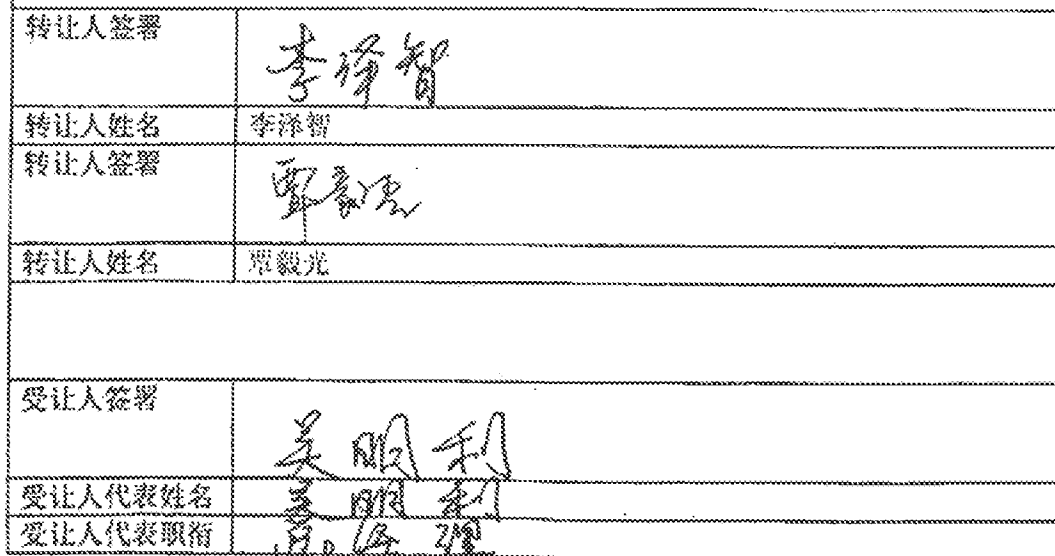 转让人签署 李泽智
转让人姓名 李泽智
转让人签署 覃毅光
转让人姓名 覃毅光
受让人签署 明利
受让人代表姓名 明利
受让人代表职衔 总经理